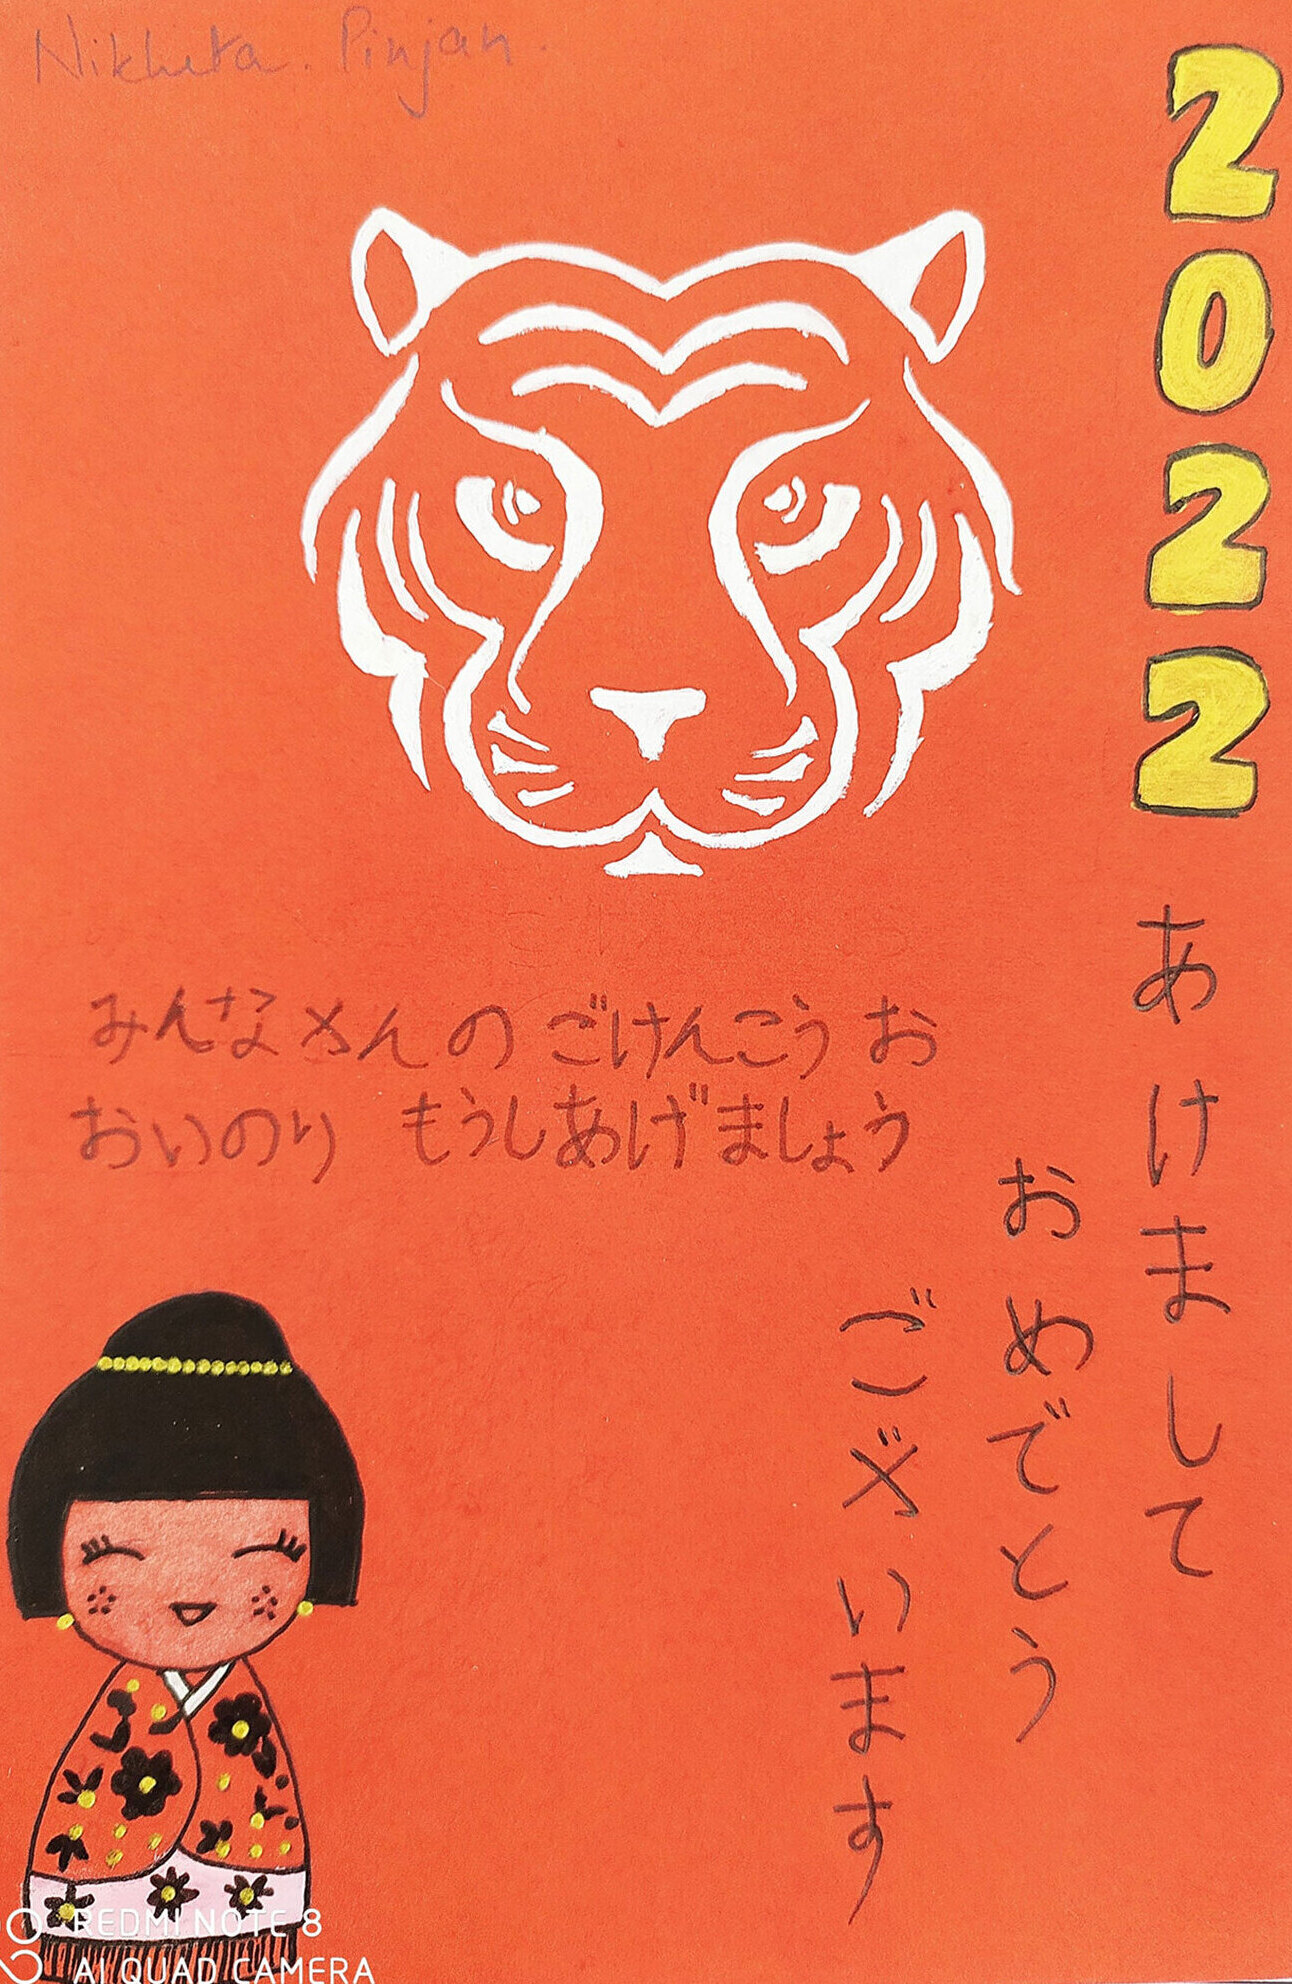 Nikhita. Pinjan.
2022
あけまして
おめでとう
ございます
みんなさんの ごけんこうお
おいのり もうしあげましょう
REDMI NOTE 8
AI QUAD CAMERA